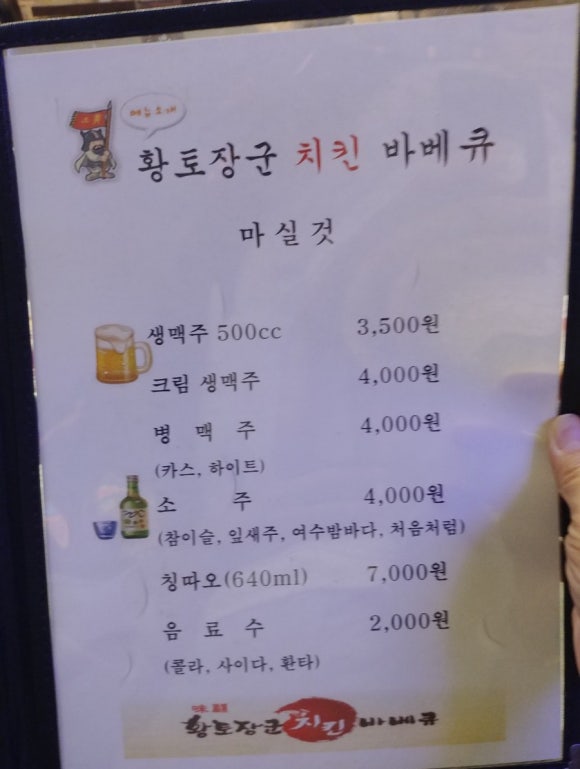 메뉴소개
황토장군 치킨 바베큐
마실것
생맥주 500cc 3,500원
크림 생맥주 4,000원
병 맥 주 4,000원
(카스, 하이트)
소 주 4,000원
(참이슬, 잎새주, 여수밤바다, 처음처럼)
칭따오(640ml) 7,000원
음 료 수 2,000원
(콜라, 사이다, 환타)
황토장군 치킨 바베큐